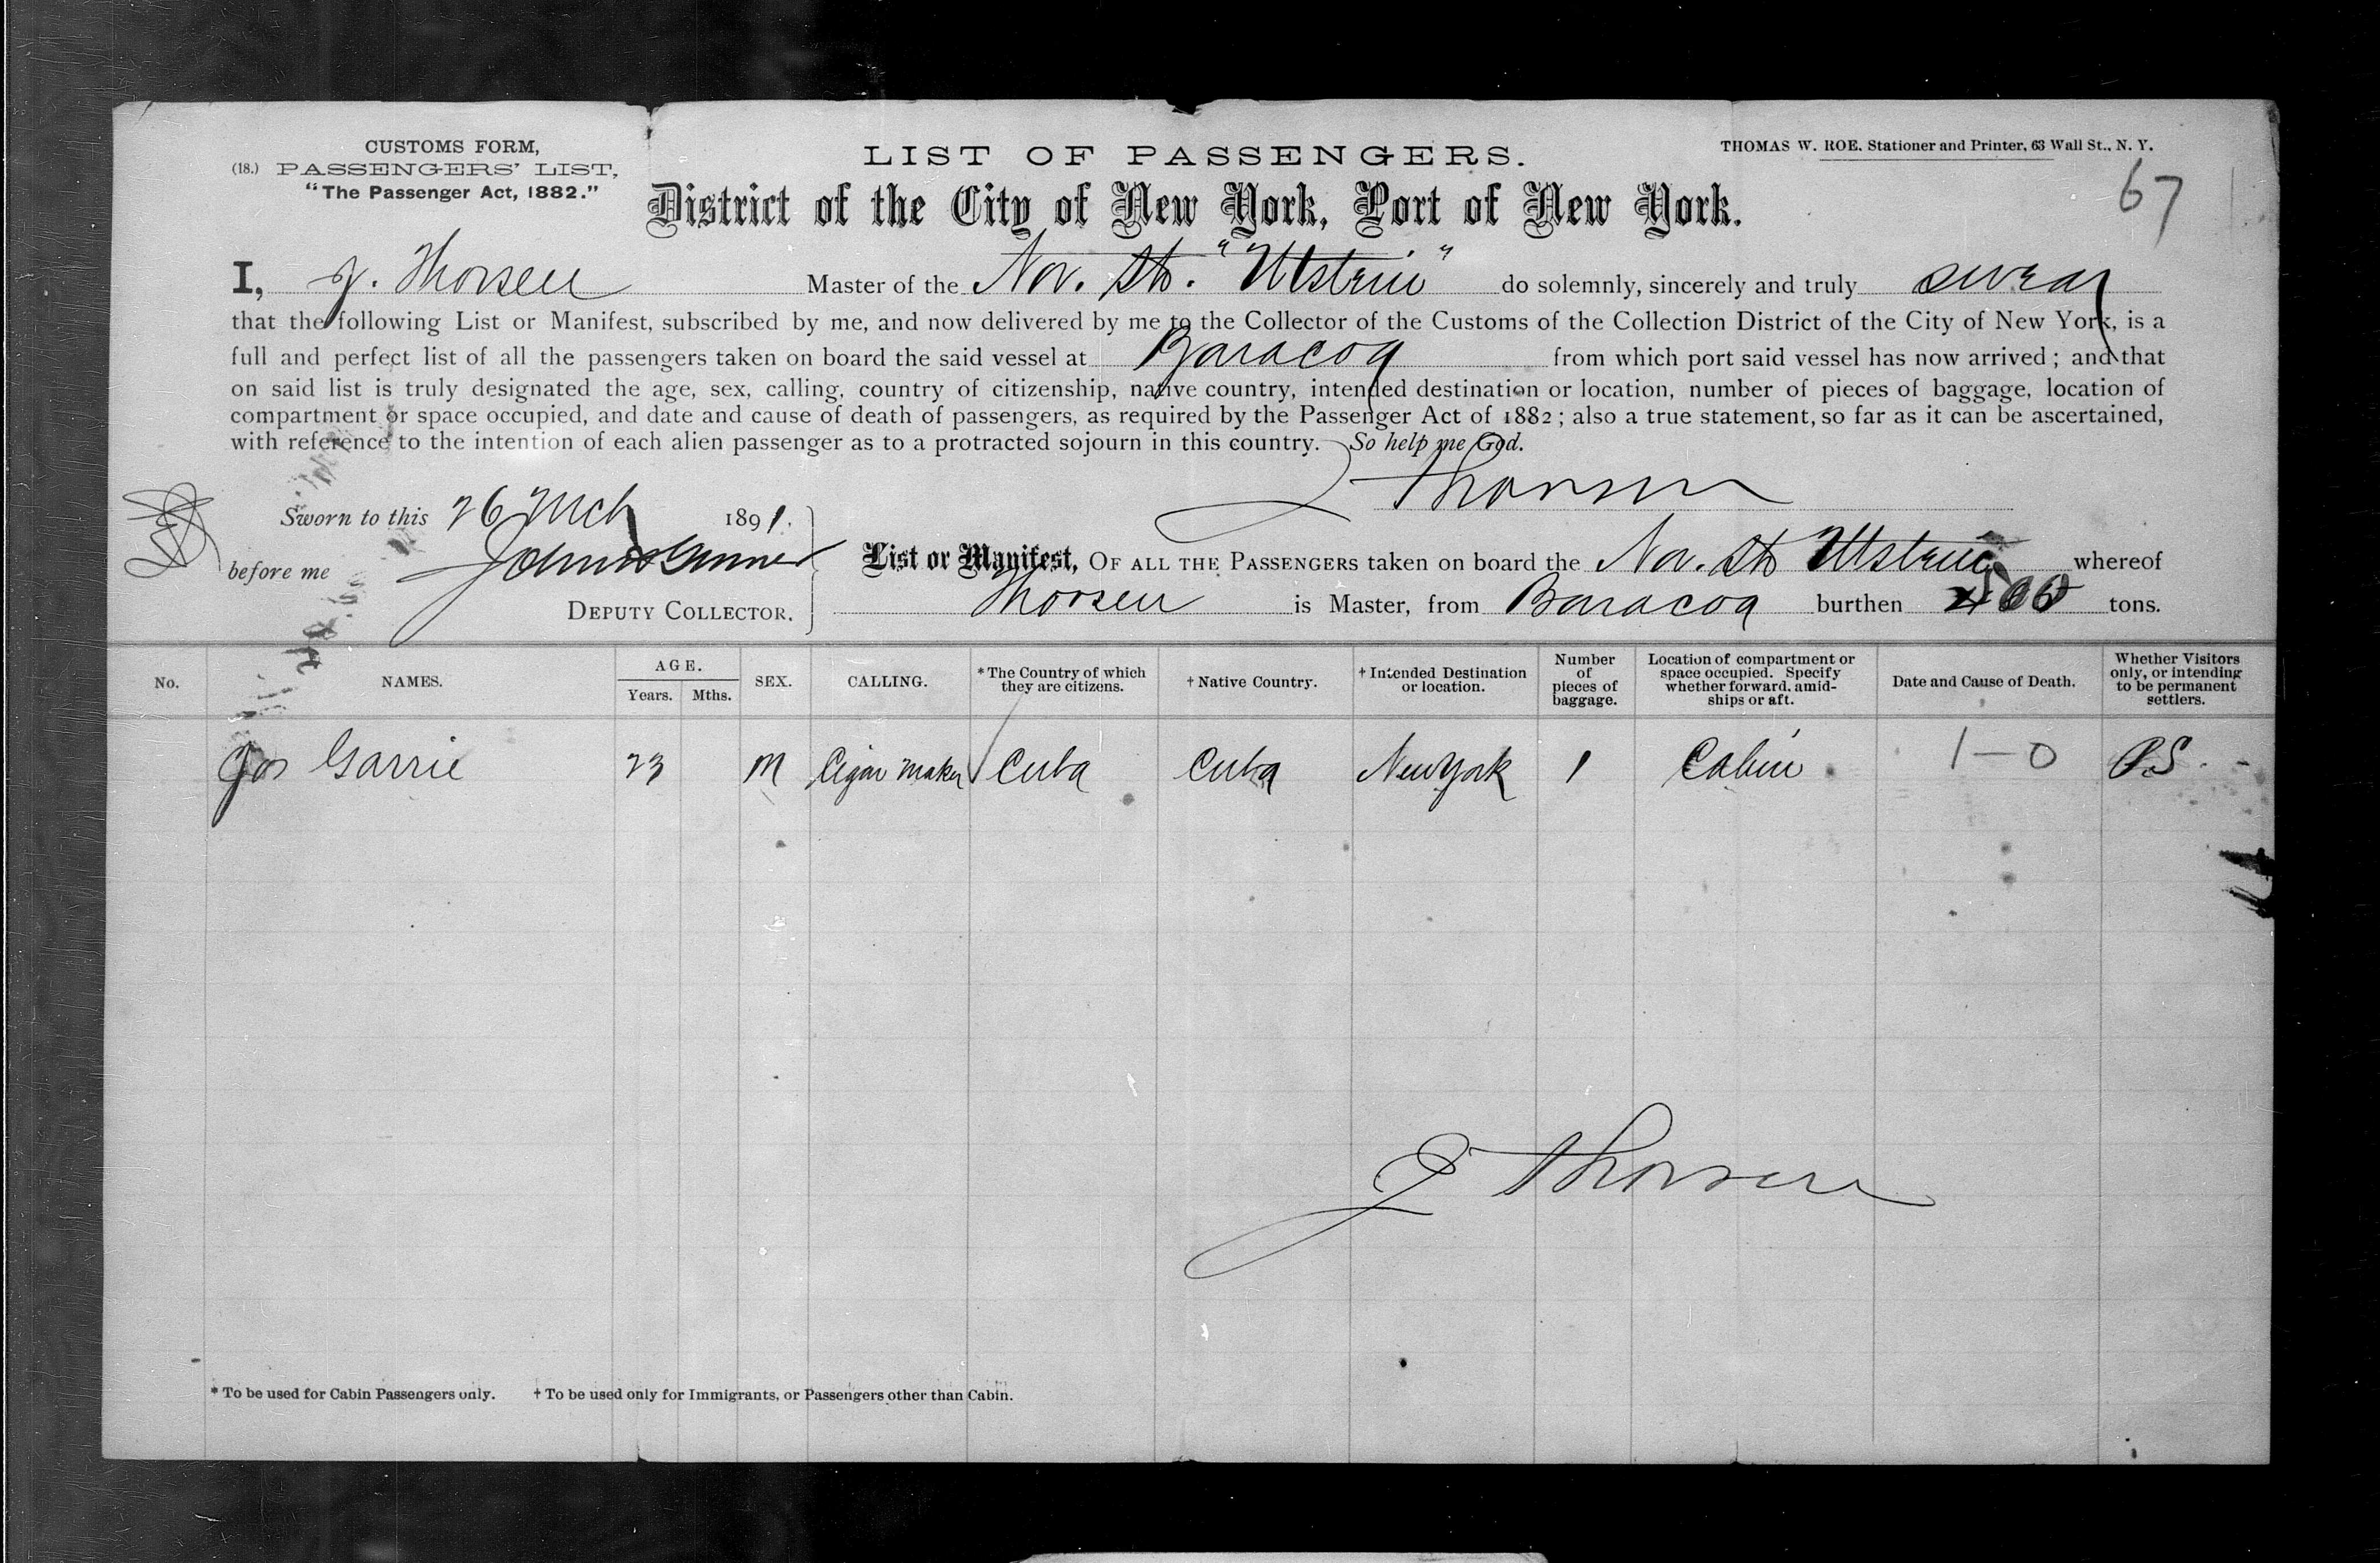 CUSTOMS FORM,
(18.) PASSENGERS' LIST,
"The Passenger Act, 1882."
LIST OF PASSENGERS.
THOMAS W. ROE. Stationer and Printer, 63 Wall St., N. Y.
67
District of the City of New York, Port of New York.
I, J. Thorsen Master of the Nor. St. "Utstein" do solemnly, sincerely and truly swear
that the following List or Manifest, subscribed by me, and now delivered by me to the Collector of the Customs of the Collection District of the City of New York, is a
full and perfect list of all the passengers taken on board the said vessel at Baracoa from which port said vessel has now arrived; and that
on said list is truly designated the age, sex, calling, country of citizenship, native country, intended destination or location, number of pieces of baggage, location of
compartment or space occupied, and date and cause of death of passengers, as required by the Passenger Act of 1882; also a true statement, so far as it can be ascertained,
with reference to the intention of each alien passenger as to a protracted sojourn in this country. So help me God.
J Thorsen
Sworn to this 26 Mch 1891.
before me
DEPUTY COLLECTOR.
List or Manifest, OF ALL THE PASSENGERS taken on board the Nor. St Utstein whereof
Thorsen is Master, from Baracoa burthen tons.
No. NAMES. AGE. Years. Mths. SEX. CALLING. * The Country of which they are citizens. † Native Country. † Intended Destination or location. Number of pieces of baggage. Location of compartment or space occupied. Specify whether forward, amidships or aft. Date and Cause of Death. Whether Visitors only, or intending to be permanent settlers.
Jos Garrie 23 M Cigar Maker Cuba Cuba New York 1 Cabin 1-0 P.S.
J Thorsen
* To be used for Cabin Passengers only. † To be used only for Immigrants, or Passengers other than Cabin.